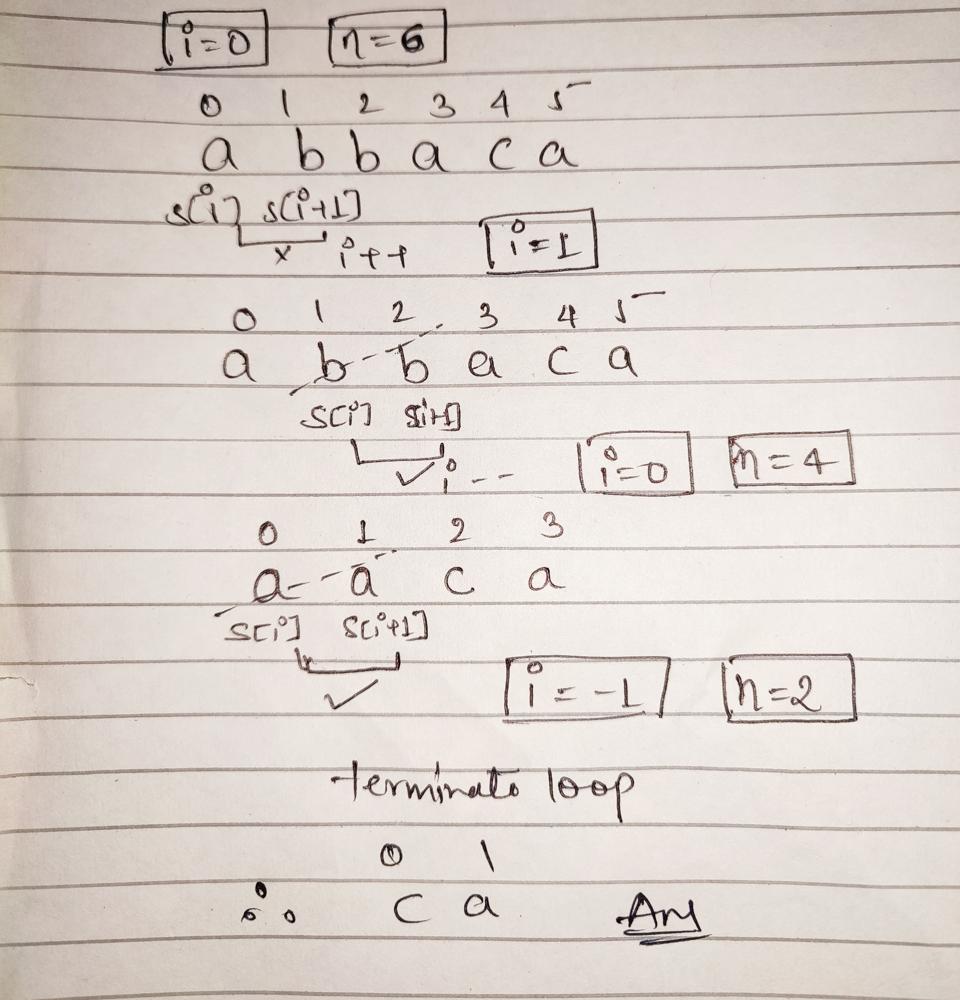 i=0 n=6
0 1 2 3 4 5
a b b a c a
s[i] s[i+1]
x i++ i=1
0 1 2 3 4 5
a b b a c a
S[i] S[i+1]
✓ i-- i=0 n=4
0 1 2 3
a a c a
S[i] S[i+1]
✓ i=-1 n=2
terminate loop
0 1
∴ c a Ans